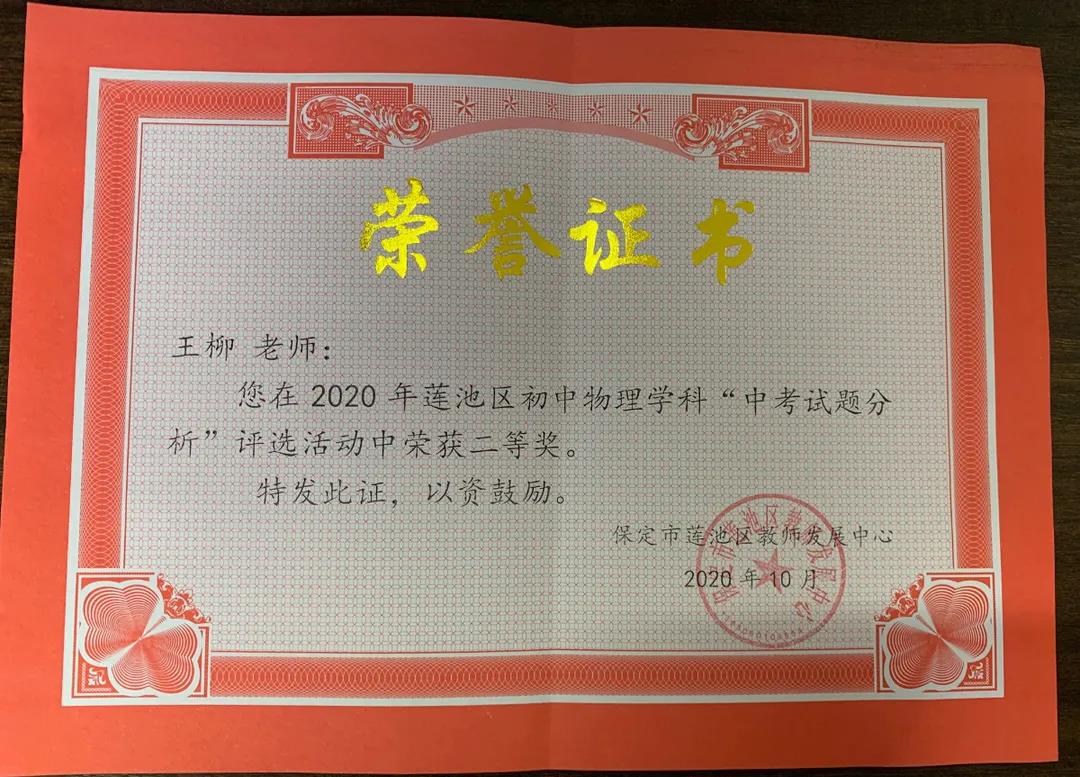 荣誉证书
王柳 老师：
您在 2020 年莲池区初中物理学科“中考试题分
析”评选活动中荣获二等奖。
特发此证，以资鼓励。
保定市莲池区教师发展中心
2020 年 10 月
保定市莲池区教师发展中心